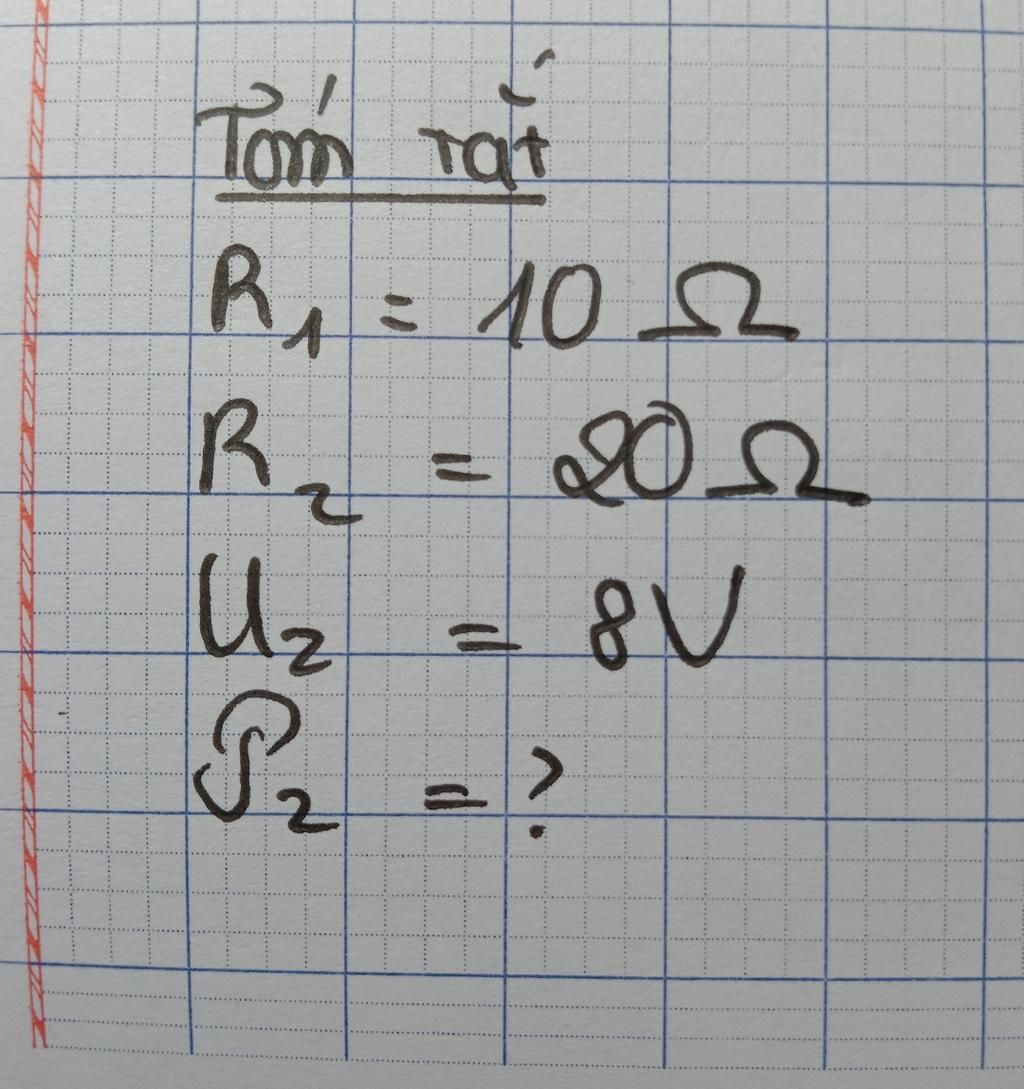 Tóm rắt
R₁ = 10 Ω
R₂ = 20 Ω
U₂ = 8V
P₂ = ?